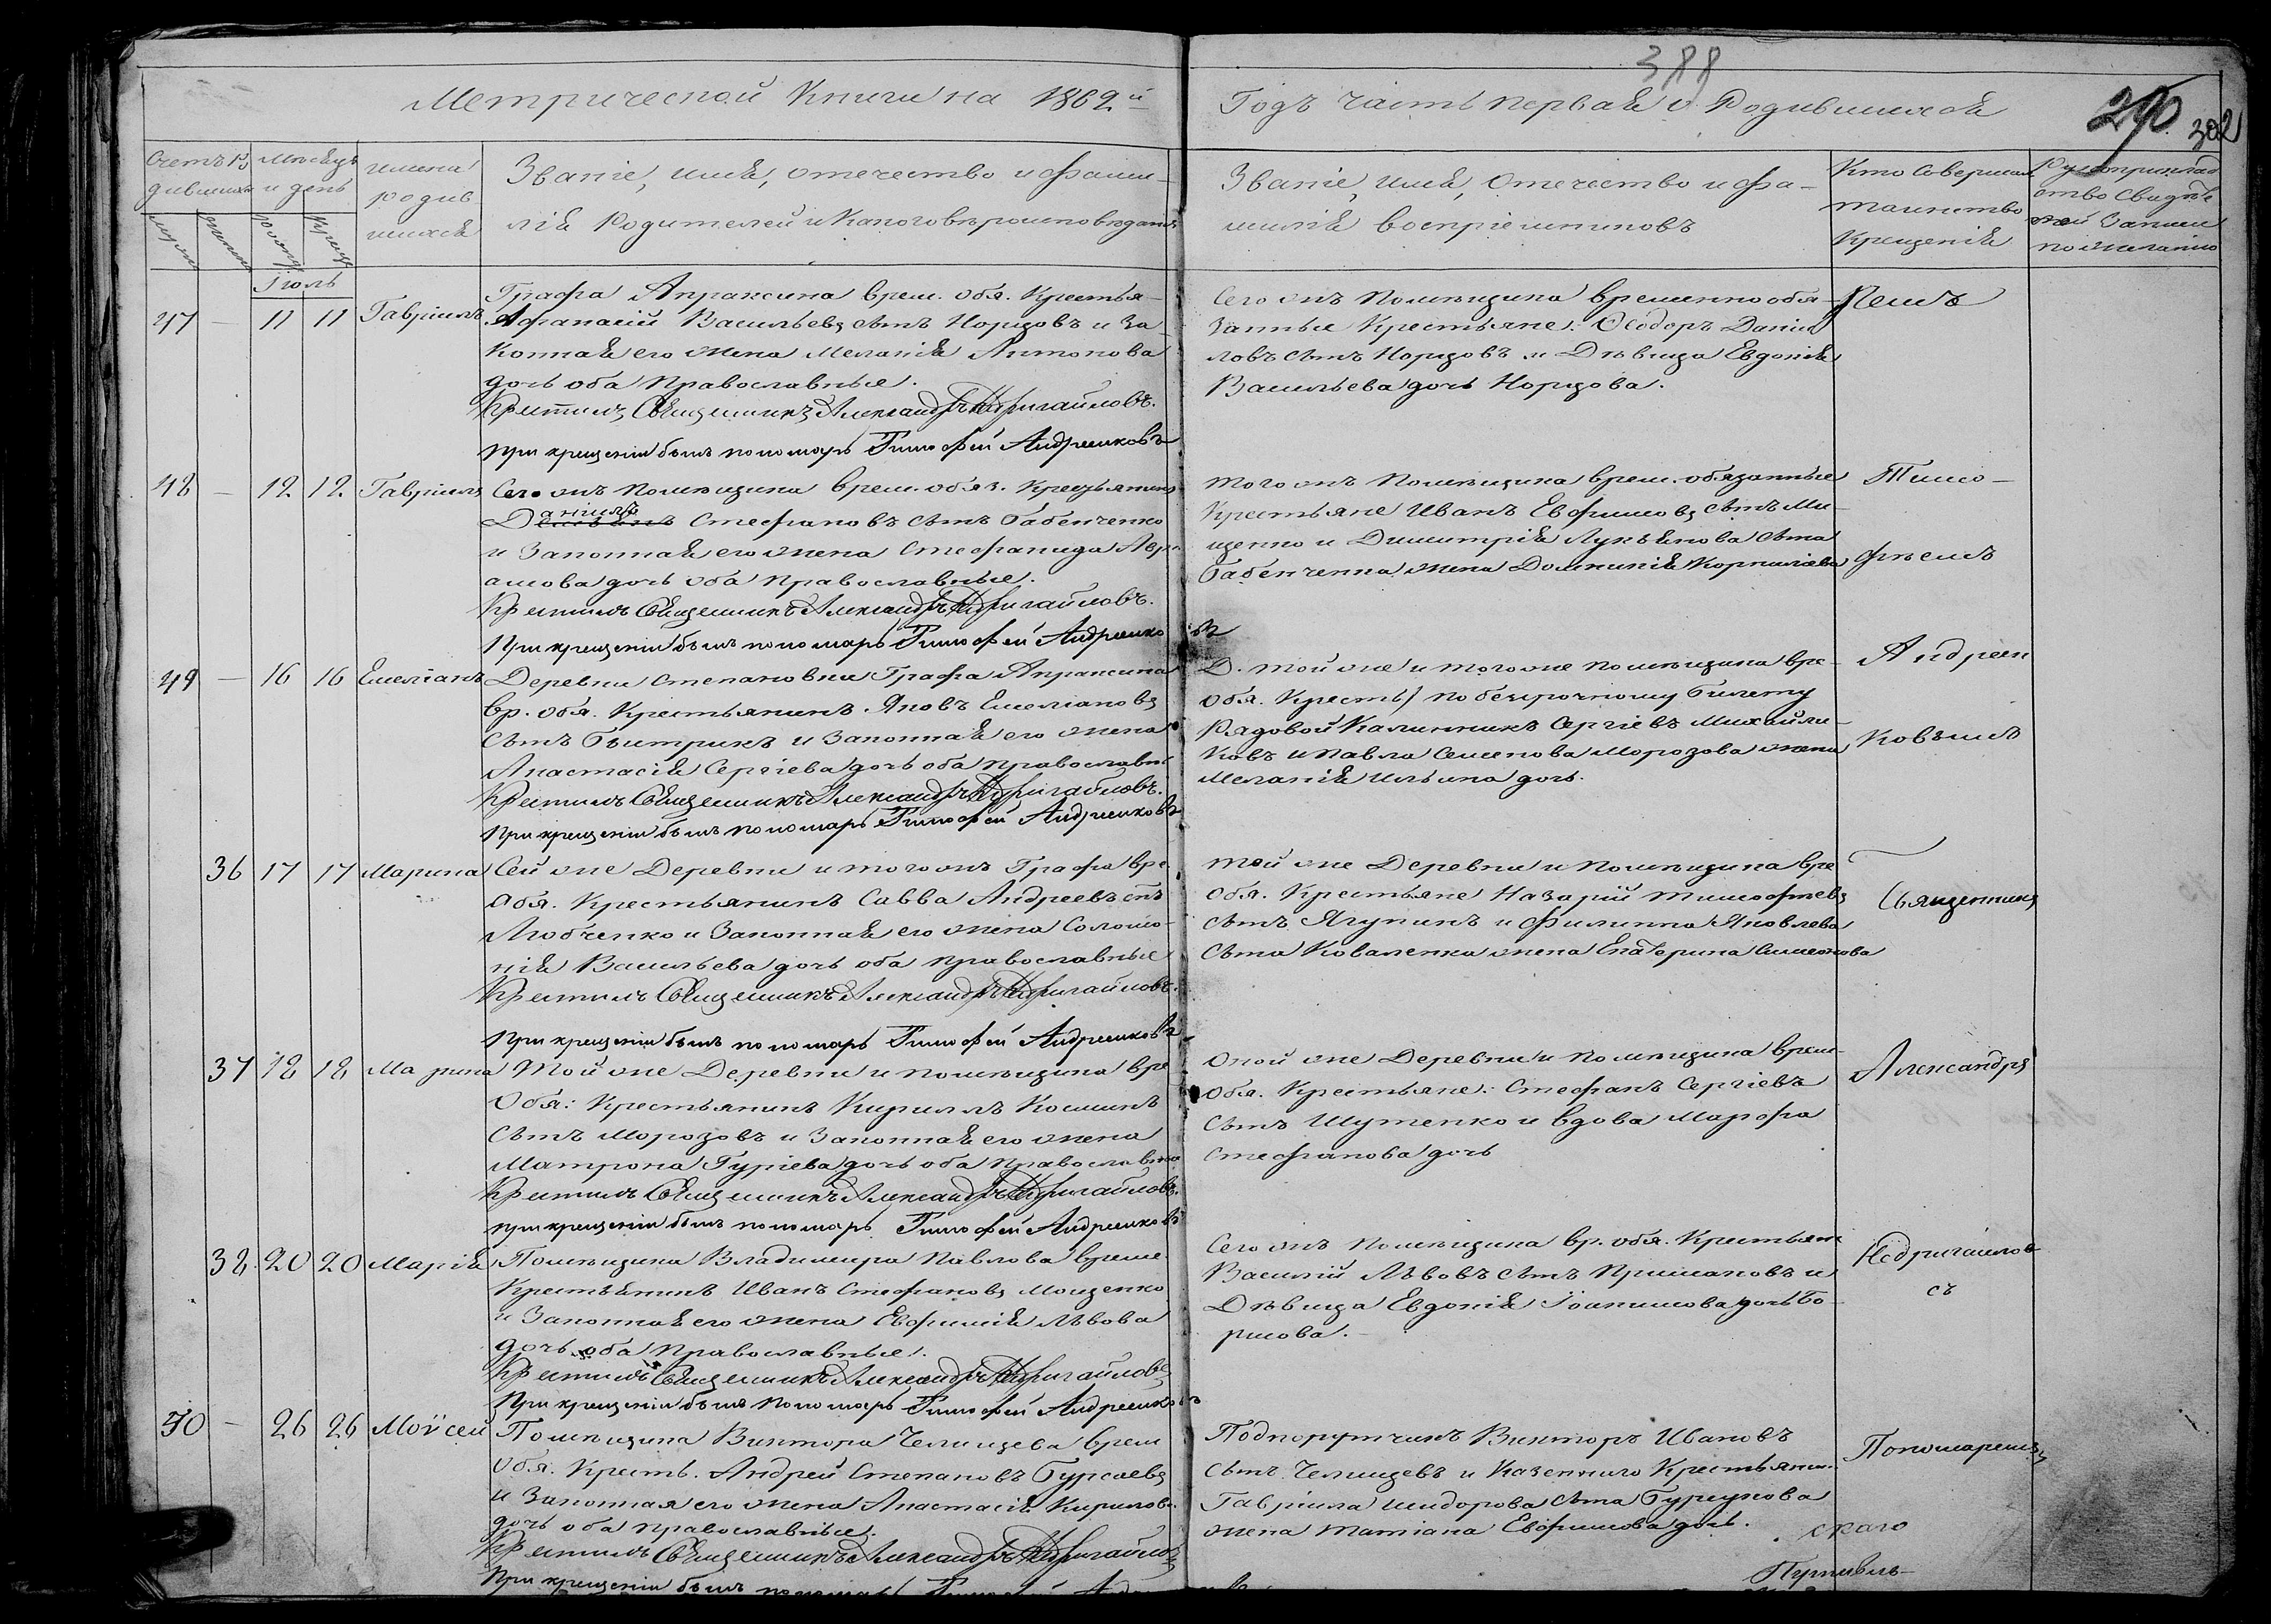 388
Метрической Книги на 1862й
Годъ часть первая о Родившихся
290
302
Счетъ ро
дившихся
Мѣсяцъ
и день
имена
родив
шихся
Званіе, имя, отечество и фами-
лія Родителей и Какого вѣроисповѣданія
Званіе, имя, Отечество и фа-
милія Воспріемниковъ
Кто совершалъ
таинство
Крещенія
Рукоприклад
ство Свидѣте
лей Записи
по желанію
Іюль
47 — 11 11 Гавріилъ
Графа Апраксина врем. обя. Крестья-
Афанасій Васильевъ сынъ Норцовъ и За-
конная его жена Меланія Антонова
дочь оба Православные.
Крестилъ Священникъ Александръ Недригайловъ.
При крещеніи былъ пономарь Тимофей Андреенковъ
Сего жъ Помѣщика временно обя-
занные Крестьяне: Ѳеодоръ Даніи
ловъ сынъ Норцовъ и Дѣвица Евдокія
Васильева дочь Норцова.
48 — 12 12 Гавріилъ
Сего жъ Помѣщика врем. обяз. Крестьянинъ
Даніилъ Стефановъ сынъ Бабенченко
и Законная его жена Стефанида Авра
амова дочь оба Православные.
Крестилъ Священникъ Александръ Недригайловъ.
При крещеніи былъ пономарь Тимофей Андреенковъ
того жъ Помѣщика врем. обязанные
Крестьяне Иванъ Евфимовъ сынъ Ми-
щенко и Димитрія Лукьянова сына
Бабенченка жена Домникія Корнилова
Тимо-
фѣемъ
49 — 16 16 Емеліанъ
Деревни Степановки Графа Апраксина
вр. обя. Крестьянинъ Яковъ Емеліановъ
сынъ Быстрикъ и Законная его жена
Анастасія Сергіева дочь оба православны
Крестилъ Священникъ Александръ Недригайловъ.
При крещеніи былъ пономарь Тимофей Андреенковъ
Д. той же и того же помѣщика вре-
обя. Кресть. по безсрочному билету
Рядовой Калинникъ Сергіевъ Михайли-
ковъ и Павла Семенова Морозова жена
Меланія Ильина дочь.
Андреен
ковымъ
36 17 17 Марина
Сей же Деревни и того жъ Графа вре-
обя. Крестьянинъ Савва Андреевъ снъ
Любченко и Законная его жена Соломо-
нія Васильева дочь оба православные
Крестилъ Священникъ Александръ Недригайловъ.
При крещеніи былъ пономарь Тимофей Андреенковъ
той же Деревни и помѣщика вре
обя. Крестьяне Назарій Тимофѣевъ
сынъ Ягупинъ и Филиппа Яковлева
сына Коваленка жена Екатерина Симеонова
Священникъ
37 18 18 Марина
Той же Деревни и помѣщика вре
Обя: Крестьянинъ Кириллъ Косминъ
сынъ Морозовъ и Законная его жена
Матрона Гуріева дочь оба православны
Крестилъ Священникъ Александръ Недригайловъ.
При крещеніи былъ пономарь Тимофей Андреенковъ
Оной же Деревни и помѣщика врем-
Обя. Крестьяне: Стефанъ Сергіевъ
сынъ Шутенко и вдова Марфа
Стефанова дочь
Александръ
38 20 20 Марія
Помѣщика Владимира Павлова време
Крестьянинъ Иванъ Стефановъ Мощенко
и Законная его жена Евфимія Львова
дочь оба Православные.
Крестилъ Священникъ Александръ Недригайловъ
При крещеніи былъ пономарь Тимофей Андреенковъ
Сего жъ Помѣщика вр. обя. Крестьяне
Василій Львовъ сынъ Примаковъ и
Дѣвица Евдокія Іоакимова дочь Бо-
рисова.
Недригайлов
съ
50 — 26 26 Моѵсей
Помѣщика Виктора Челищева врем
обя. Кресть. Андрей Степановъ Бурсаевъ
и Законная его жена Анастасія Кирилова
дочь оба православные.
Крестилъ Священникъ Александръ Недригайловъ
При крещеніи былъ пономарь Тимофей
Подпоручикъ Викторъ Ивановъ
сынъ Челищевъ и Казенного Крестьяни-
Гавріила Исидорова сына
жена Татіана Евфимова дочь.
Пономаремъ
скаго
Путивль-